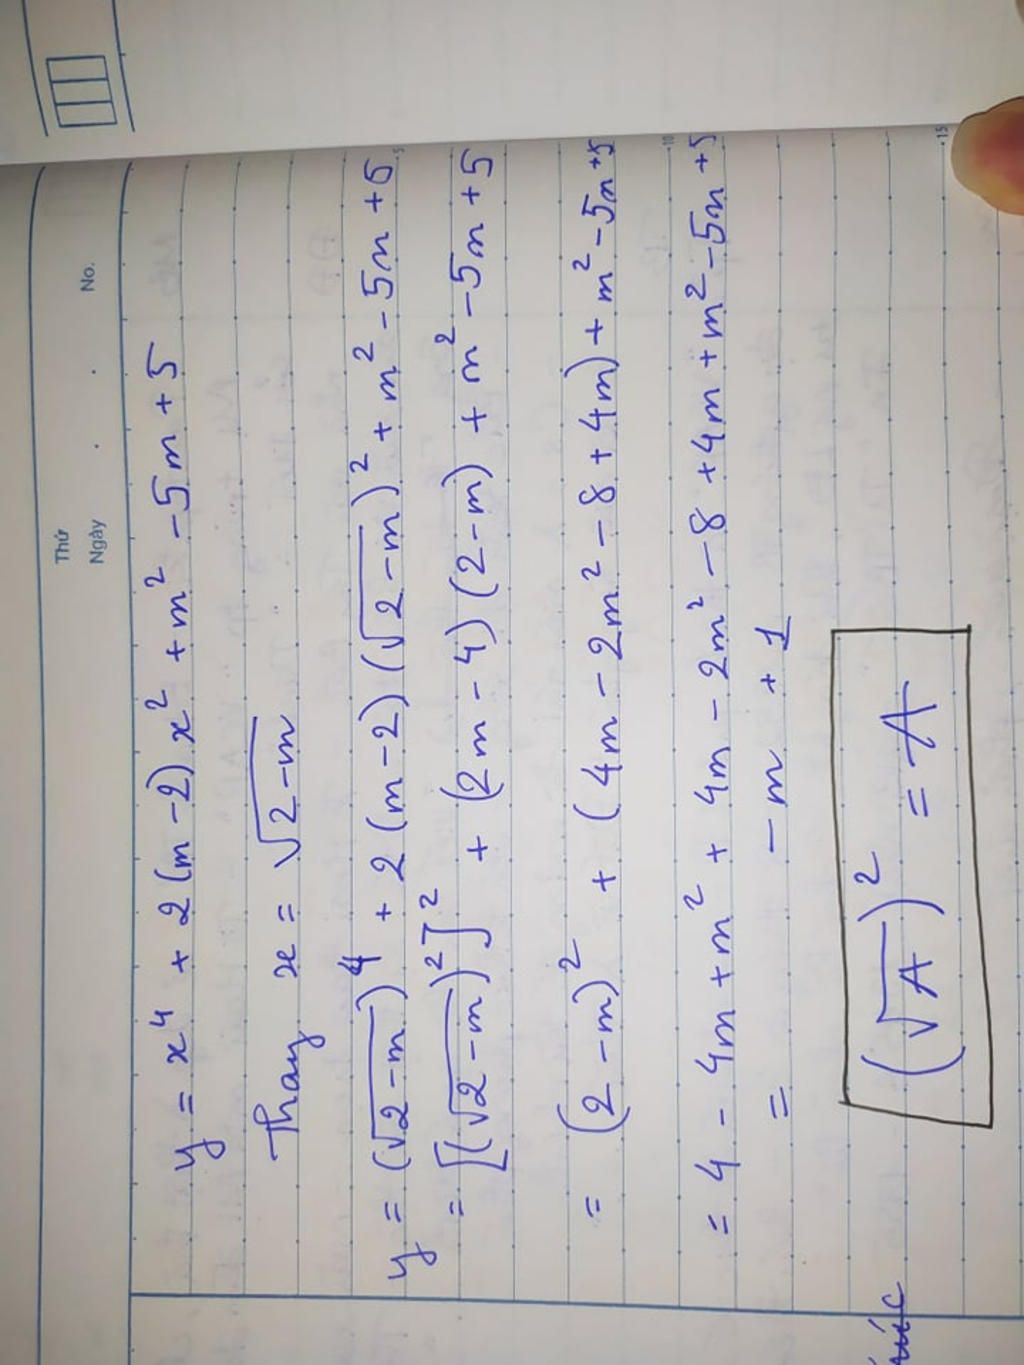 Thứ
Ngày . . No.
y = x⁴ + 2(m-2)x² + m² - 5m + 5
Thay x = √(2-m)
y = (√(2-m))⁴ + 2(m-2)(√(2-m))² + m² - 5m + 5
= [(√(2-m))²]² + (2m-4)(2-m) + m² - 5m + 5
= (2-m)² + (4m - 2m² - 8 + 4m) + m² - 5m + 5
= 4 - 4m + m² + 4m - 2m² - 8 + 4m + m² - 5m + 5
= - m + 1
(√A)² = A
5
10
15